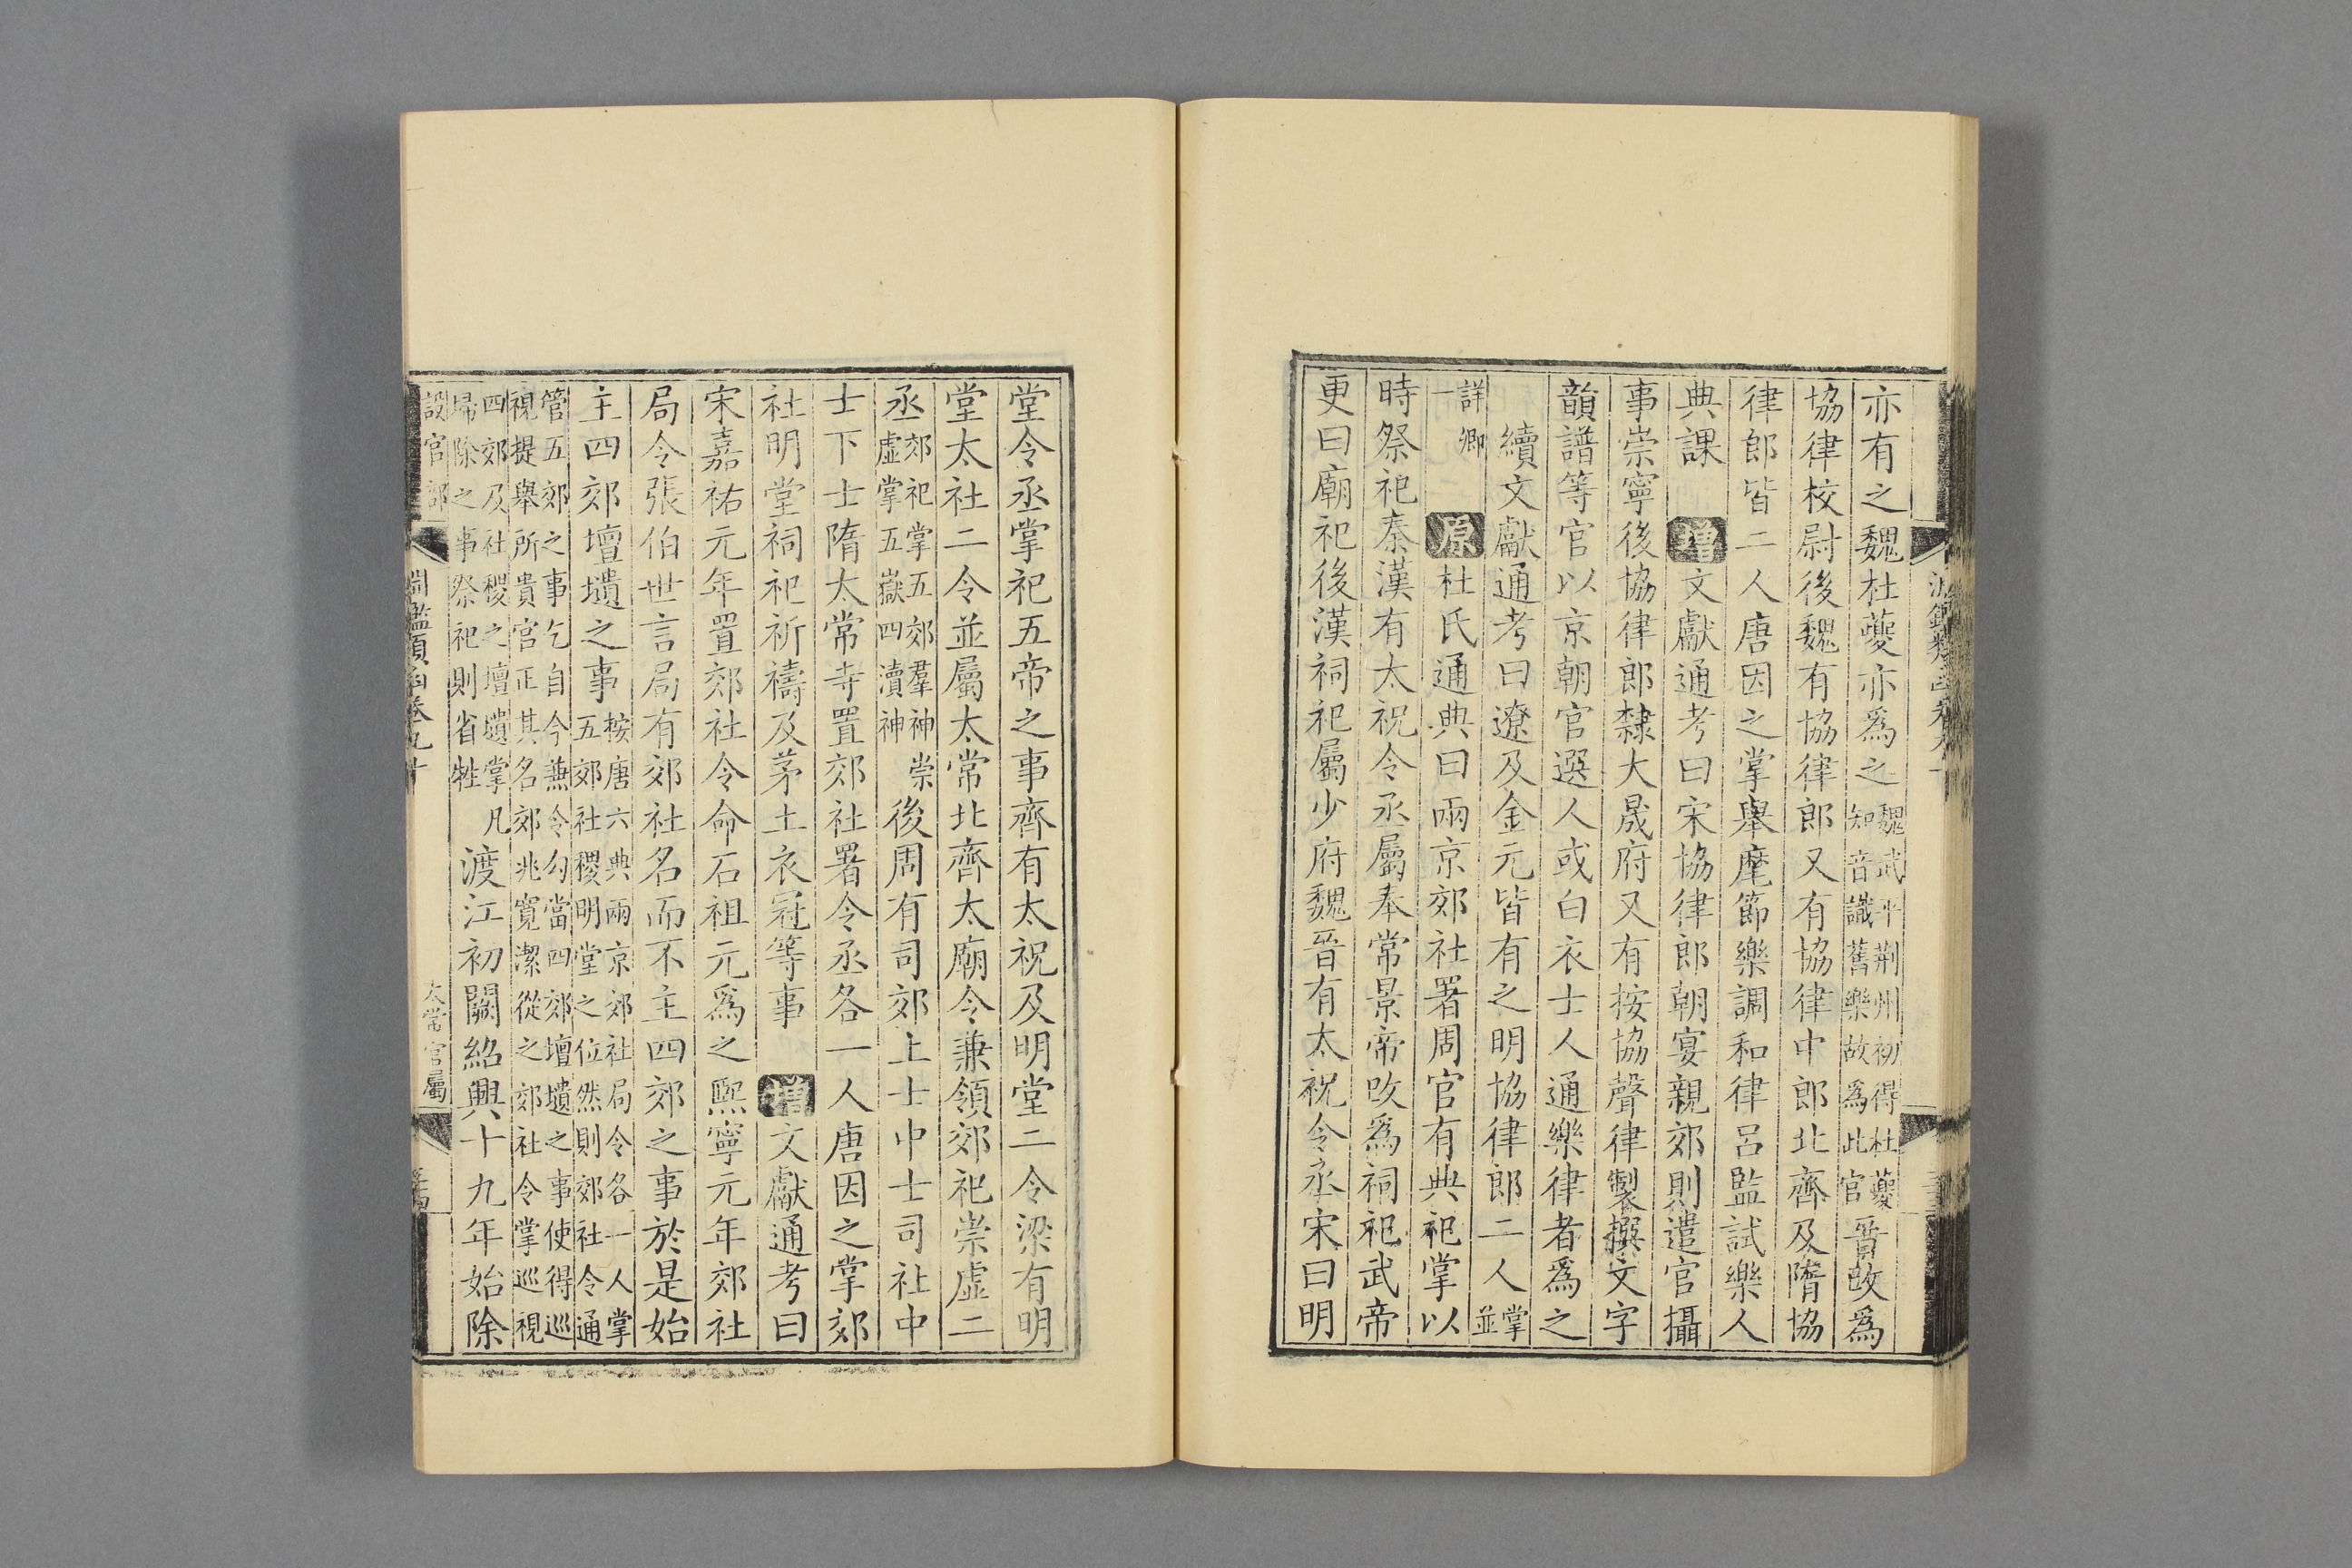 亦有之魏杜夔亦爲之魏武平荆州初得杜夔知音識舊樂故爲此官晉改爲
協律校尉後魏有協律郎又有協律中郎北齊及隋協
律郎皆二人唐因之掌舉麾節樂調和律呂監試樂人
典課 增文獻通考曰宋協律郎朝宴親郊則遣官攝
事崇寧後協律郎隸大晟府又有按協聲律製撰文字
韻譜等官以京朝官選人或白衣士人通樂律者爲之
續文獻通考曰遼及金元皆有之明協律郎二人掌並
詳卿一 原杜氏通典曰兩京郊社署周官有典祀掌以
時祭祀秦漢有太祝令丞屬奉常景帝改爲祠祀武帝
更曰廟祀後漢祠祀屬少府魏晉有太祝令丞宋曰明
堂令丞掌祀五帝之事齊有太祝及明堂二令梁有明
堂太社二令並屬太常北齊太廟令兼領郊祀崇虛二
丞郊祀掌五郊羣神崇虛掌五嶽四瀆神後周有司郊上士中士司社中
士下士隋太常寺置郊社署令丞各一人唐因之掌郊
社明堂祠祀祈禱及茅土衣冠等事 增文獻通考曰
宋嘉祐元年置郊社令命石祖元爲之熙寧元年郊社
局令張伯世言局有郊社名而不主四郊之事於是始
主四郊壇壝之事按唐六典兩京郊社局令各一人掌五郊社稷明堂之位然則郊社令通
管五郊之事乞自今兼令勾當四郊壇壝之事使得巡視提舉所貴官正其名郊兆寬潔從之郊社令掌巡視
四郊及社稷之壇壝掌凡掃除之事祭祀則省牲渡江初闕紹興十九年始除
設官部 淵鑑類函卷九十 太常官屬